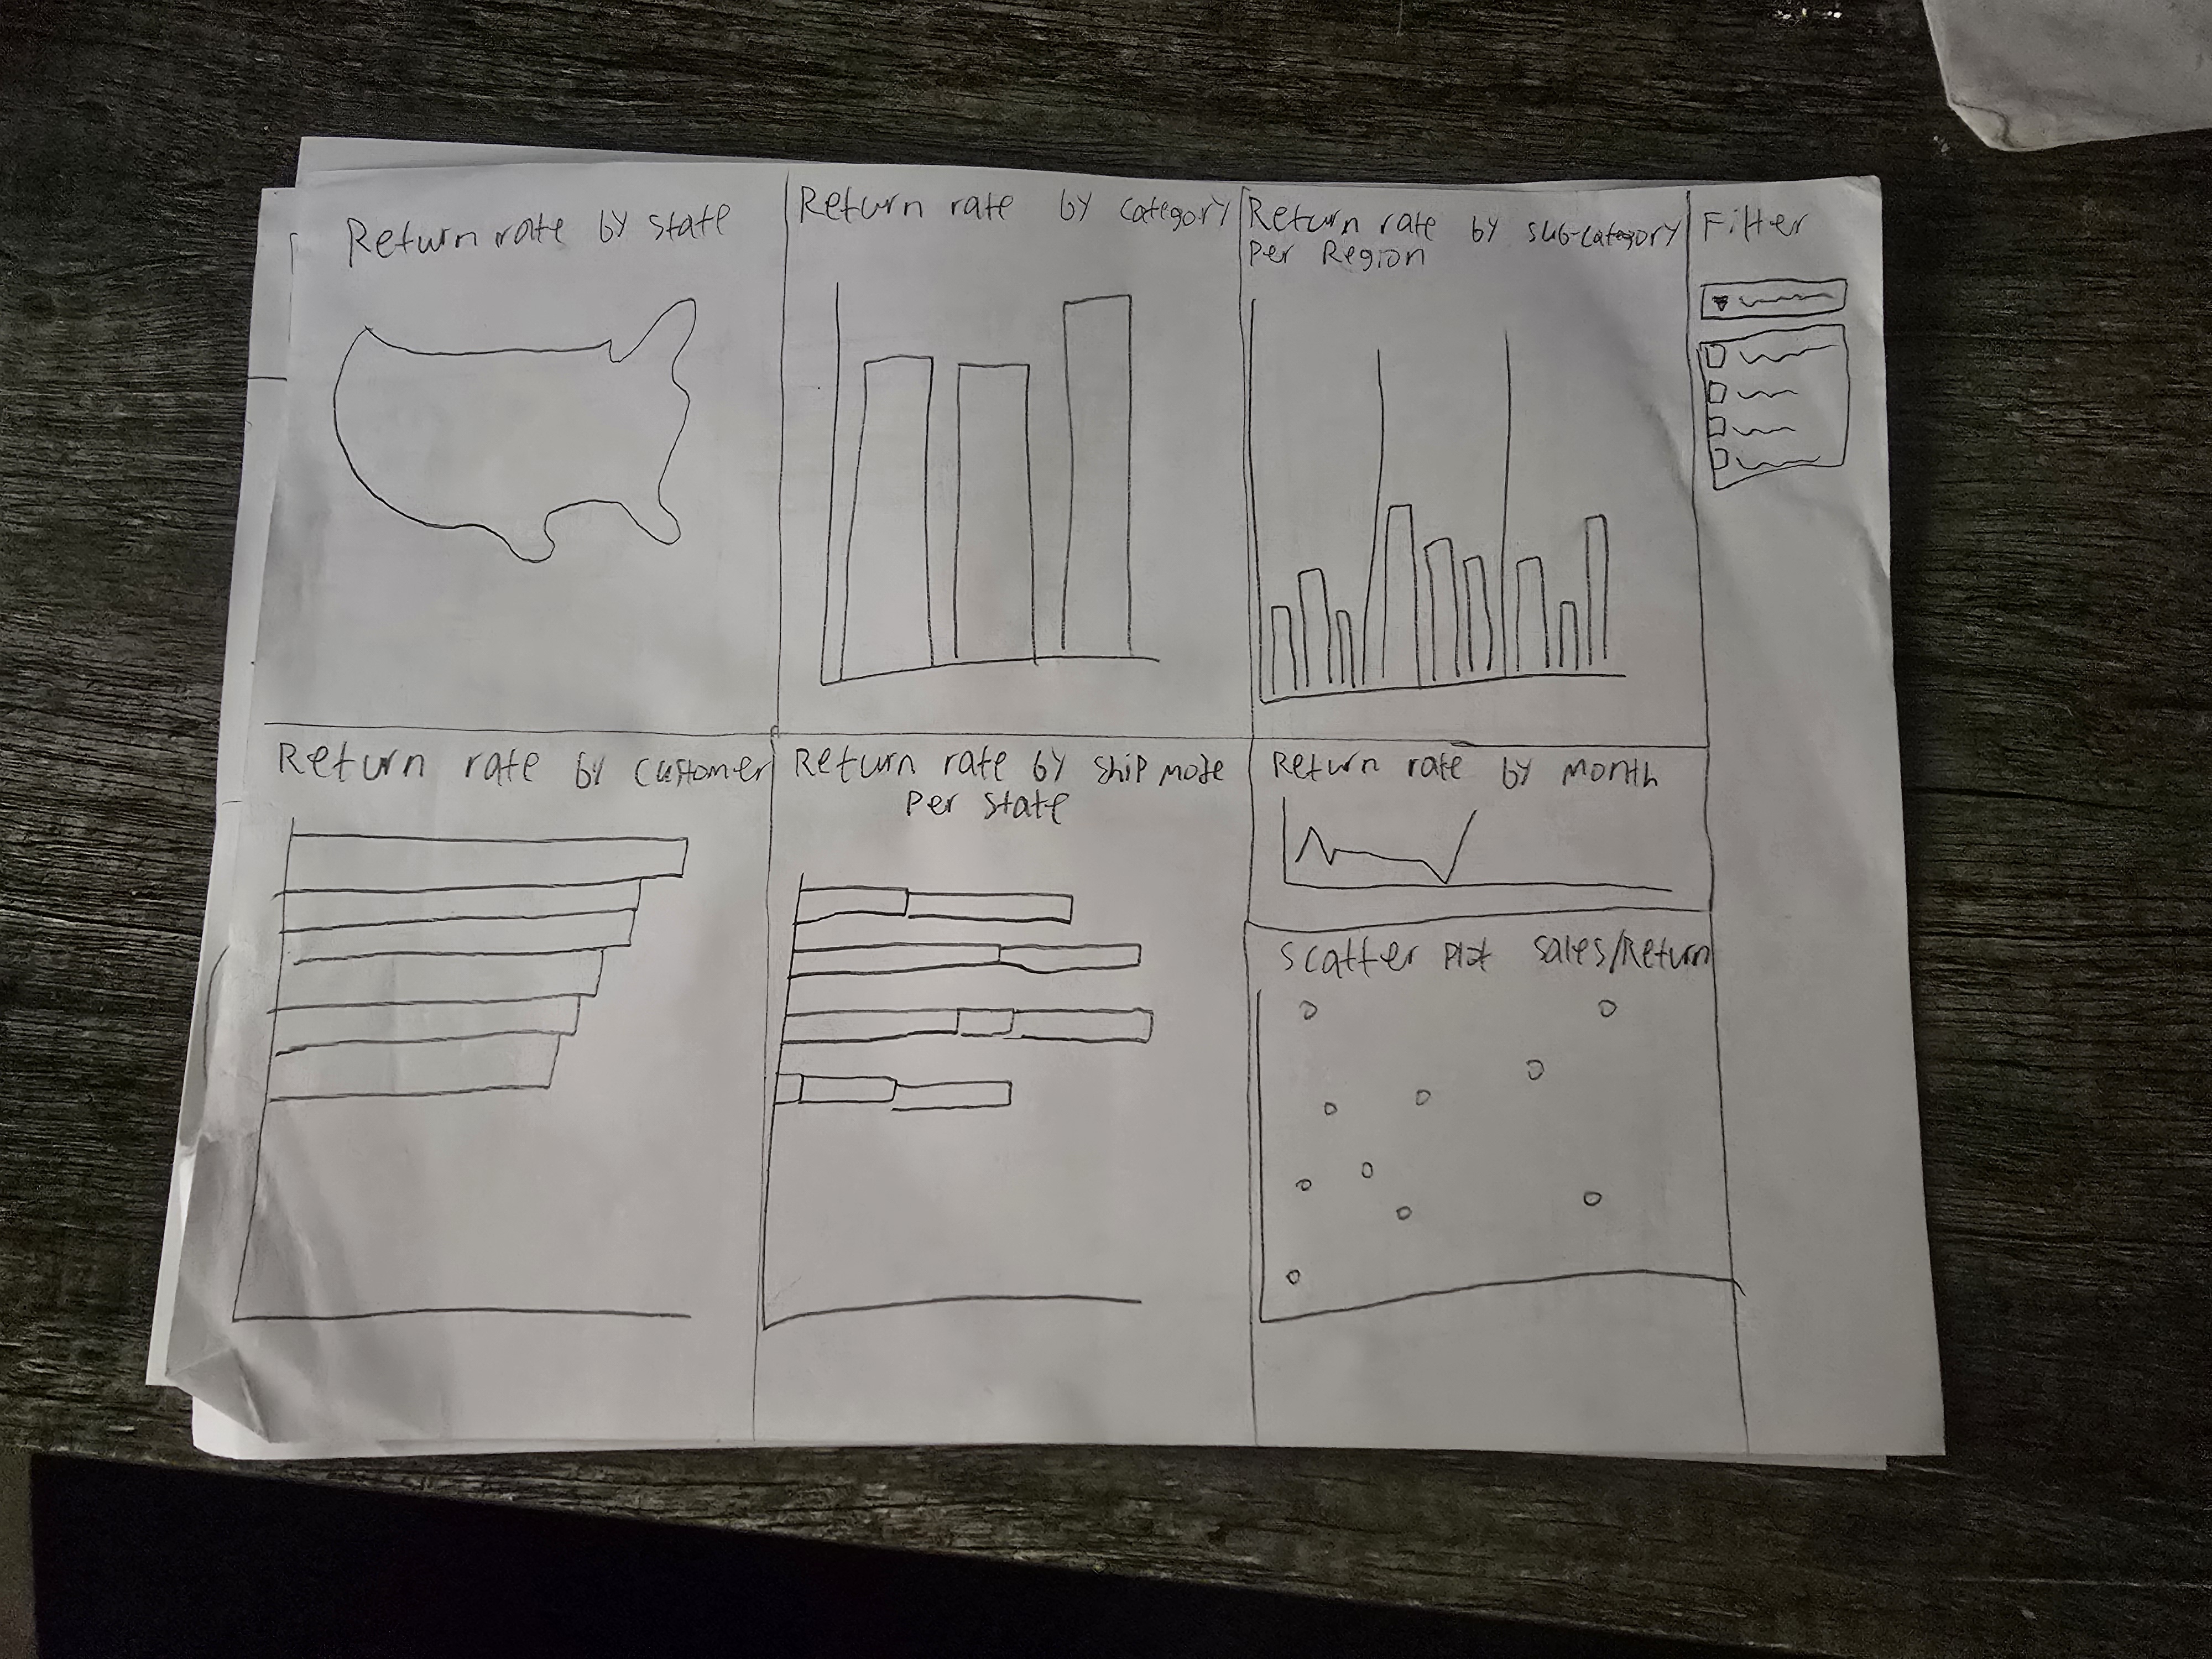 Return rate by state
Return rate by category
Return rate by sub-category
Per Region
Filter
Return rate by customer
Return rate by ship mode
Per state
Return rate by month
Scatter Plot sales/Return